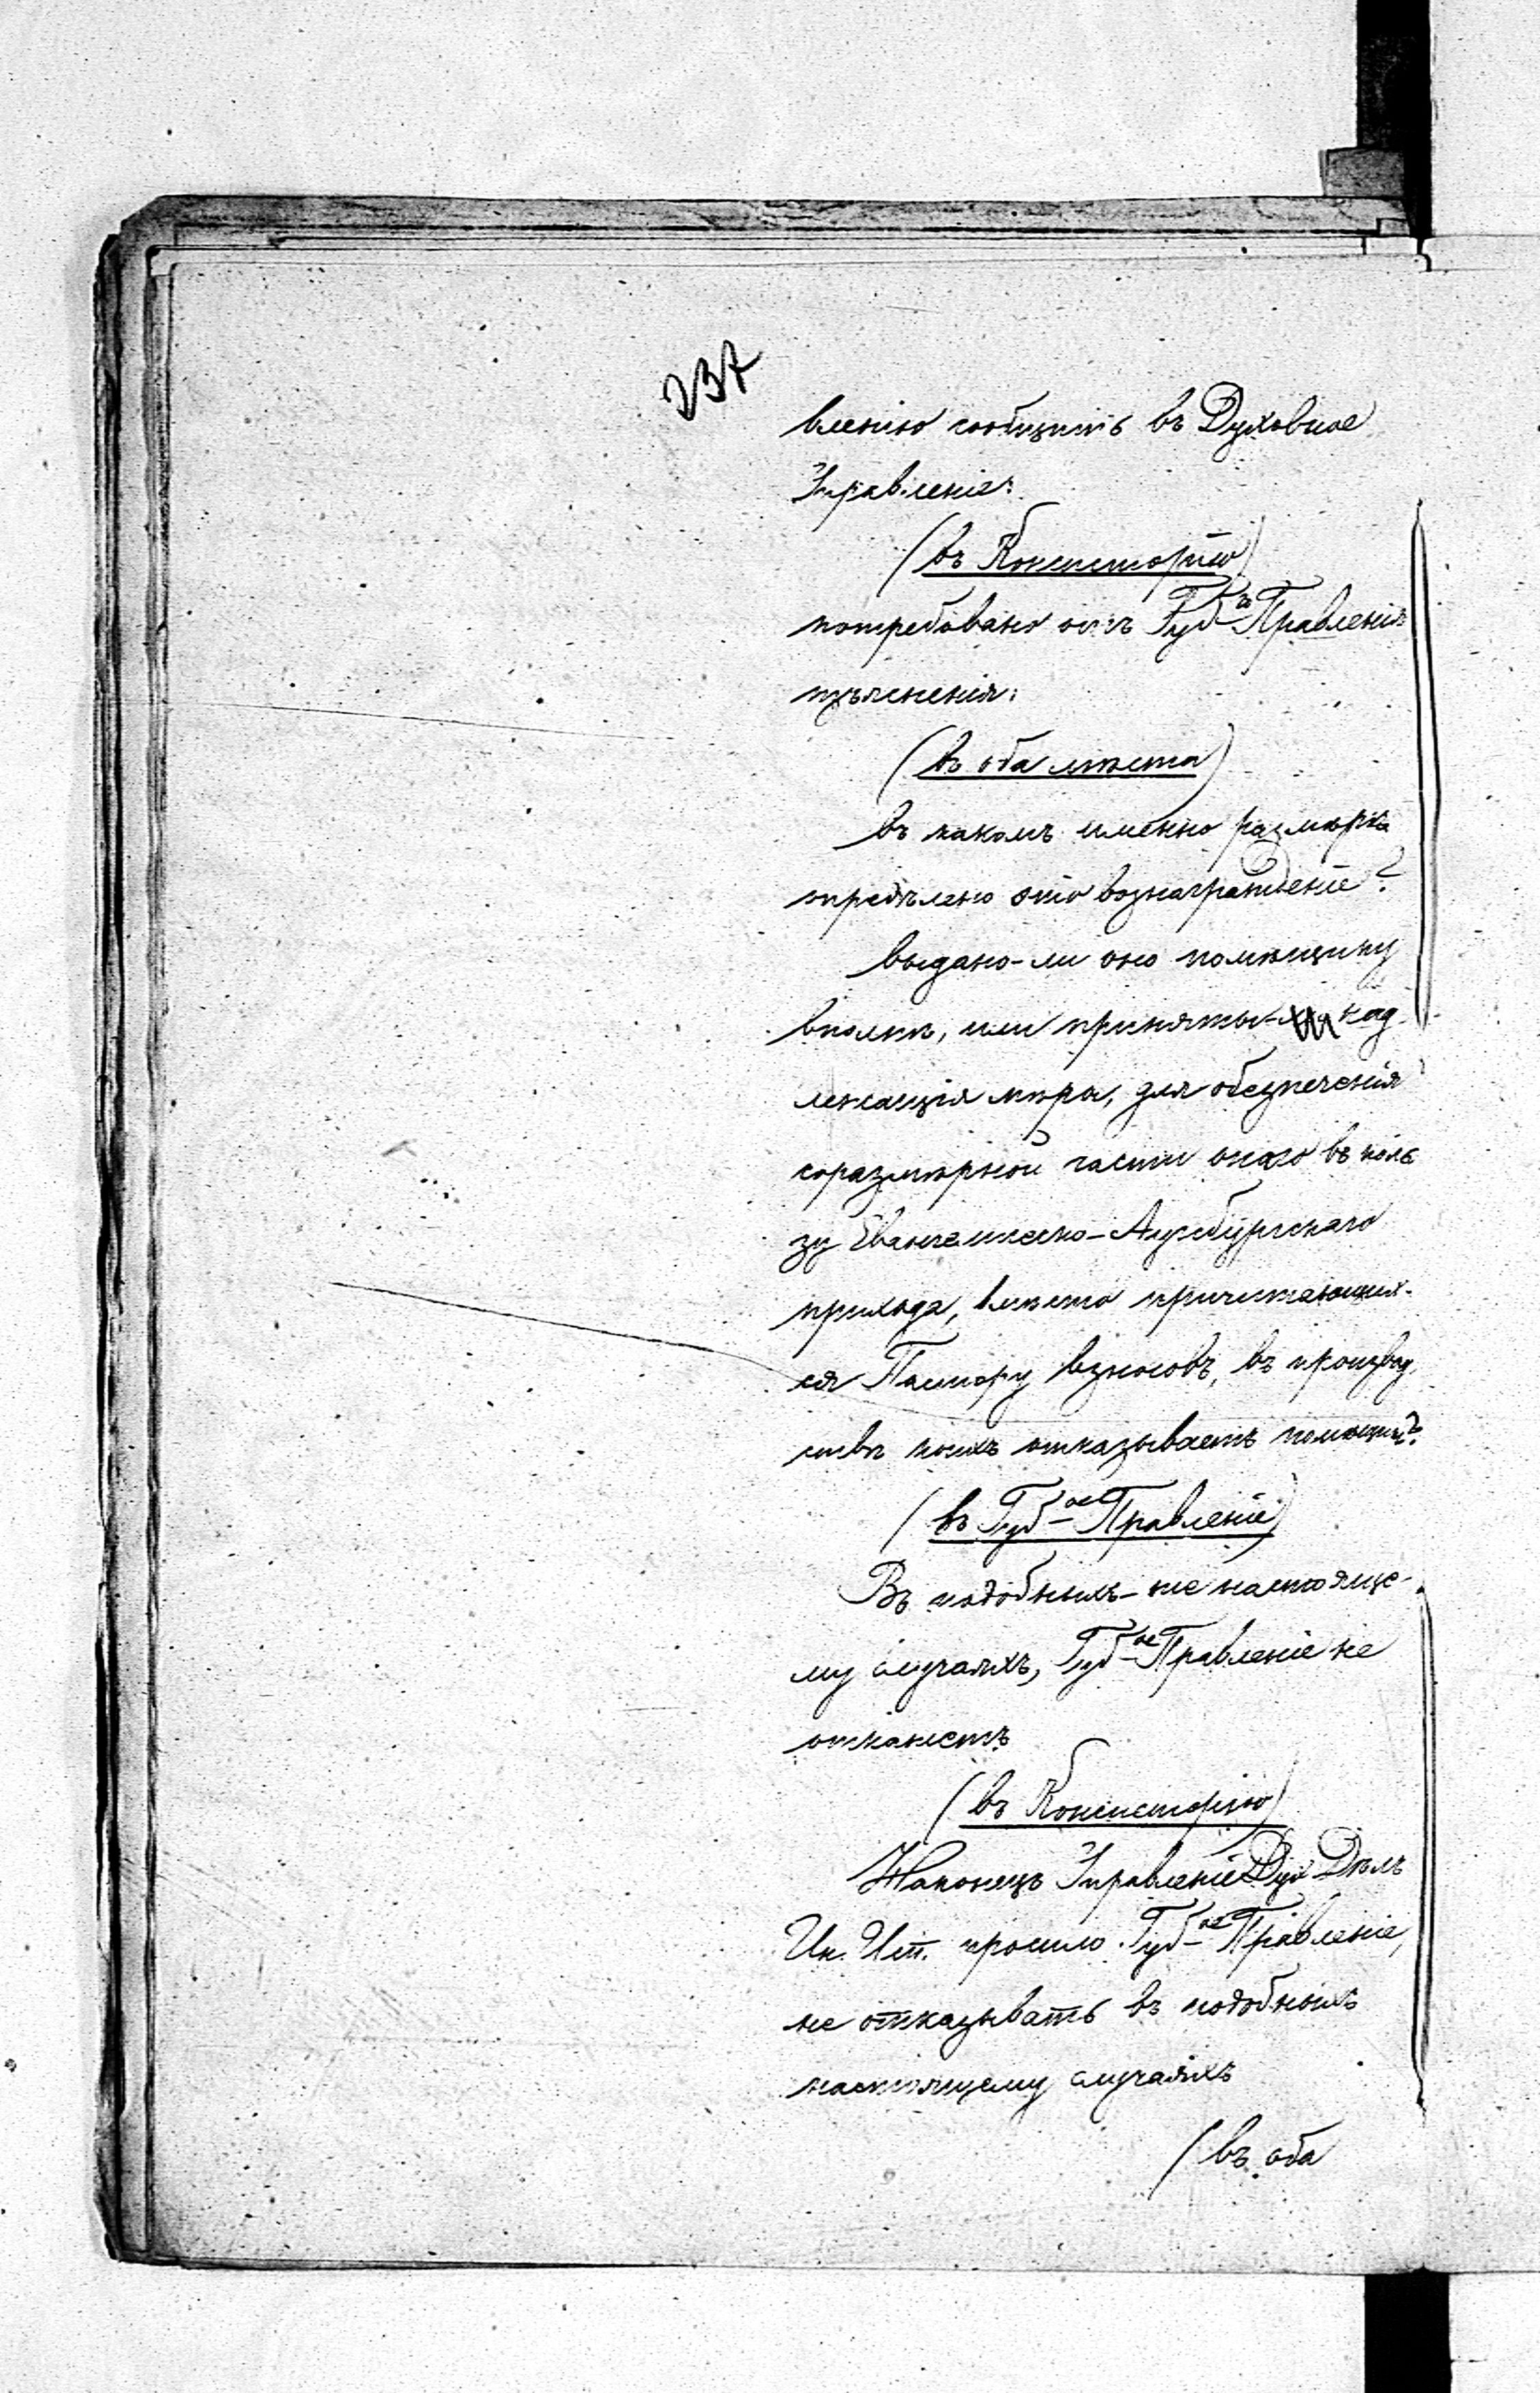 237
вленію сообщить въ Духовное
Управленіе:
(въ Консисторію)
потребовано отъ Губ-го Правленія
изъясненія:
(въ оба мѣста)
въ какомъ именно размѣрѣ
опредѣлено это вознагражденіе?
выдано-ли оно помѣщику
вполнѣ, или приняты-ли над
лежащія мѣры, для обезпеченія
соразмѣрной части онаго въ поль
зу Евангелическо-Аугсбургскаго
прихода, вмѣсто причитающих-
ся Пастору взносовъ, въ производ
ствѣ коихъ отказываетъ помѣщикъ?
(въ Губ-ое Правленіе)
Въ подобныхъ-же настояще-
му случаяхъ, Губ-ое Правленіе не
откажетъ
(въ Консисторію)
Наконецъ Управленіе Дух Дѣлъ
Ин. Исп. просило Губ-ое Правленіе,
не отказывать въ подобныхъ
настоящему случаяхъ
(въ оба